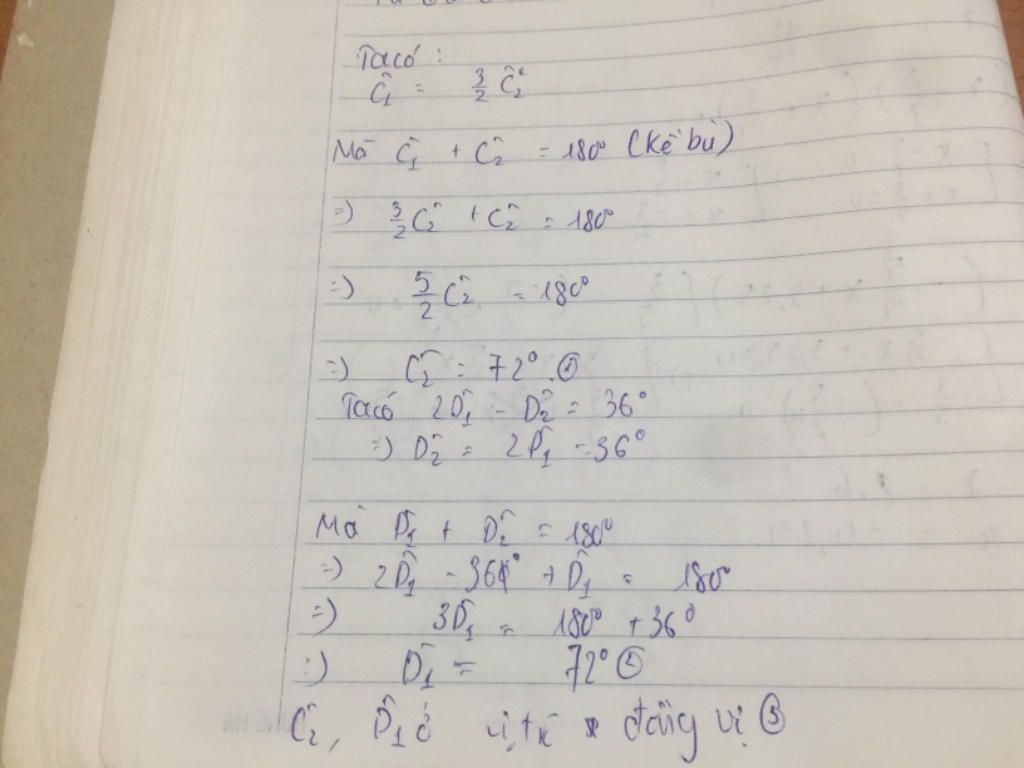 Ta có :
Ĉ₁ = 3/2 Ĉ₂
Mà Ĉ₁ + Ĉ₂ = 180° (kề bù)
=) 3/2 Ĉ₂ + Ĉ₂ = 180°
=) 5/2 Ĉ₂ = 180°
=) Ĉ₂ = 72° . ①
Ta có 2D̂₁ - D̂₂ = 36°
=) D̂₂ = 2D̂₁ - 36°
Mà D̂₁ + D̂₂ = 180°
=) 2D̂₁ - 36° + D̂₁ = 180°
=) 3D̂₁ = 180° + 36°
=) D̂₁ = 72° ②
Ĉ₂, D̂₁ ở vị trí đồng vị ③